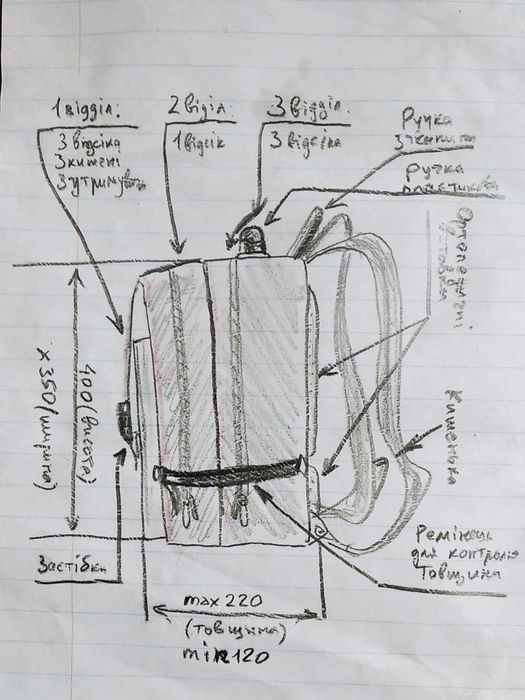 1 відділ:
3 відсіка
3 кишені
3 утримув.
2 відділ:
1 відсік
3 відділ:
3 відсіка
Ручка
з тканини
Ручка
пластикова
Ортопедичні
вставки
Кишенька
400 (висота)
x 350 (ширина)
Застібка
Ремінець
для контролю
Товщини
max 220
(товщина)
min 120